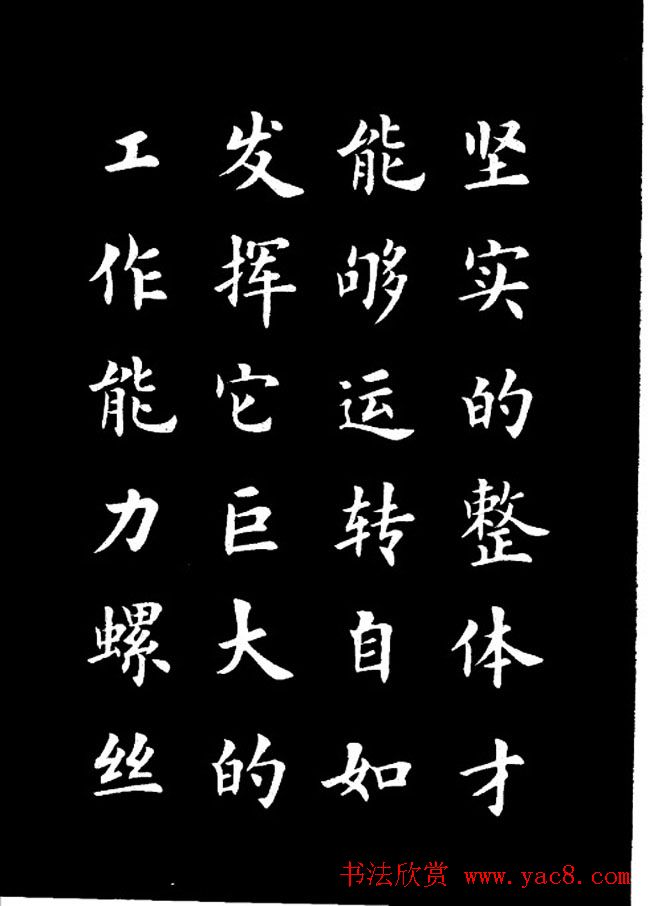 坚实的整体才
能够运转自如
发挥它巨大的
工作能力螺丝
书法欣赏 www.yac8.com